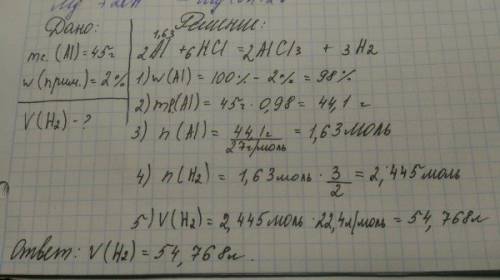 Дано:
m(Al) = 45г
w(прим.) = 2%
V(H₂) - ?
Решение:
1,63
2Al + 6HCl = 2AlCl₃ + 3H₂
1) w(Al) = 100% - 2% = 98%
2) m(Al) = 45г · 0,98 = 44,1 г
3) n(Al) = 44,1г / 27г/моль = 1,63 моль
4) n(H₂) = 1,63 моль · 3/2 = 2,445 моль
5) V(H₂) = 2,445 моль · 22,4 л/моль = 54,768 л
Ответ: V(H₂) = 54,768 л.